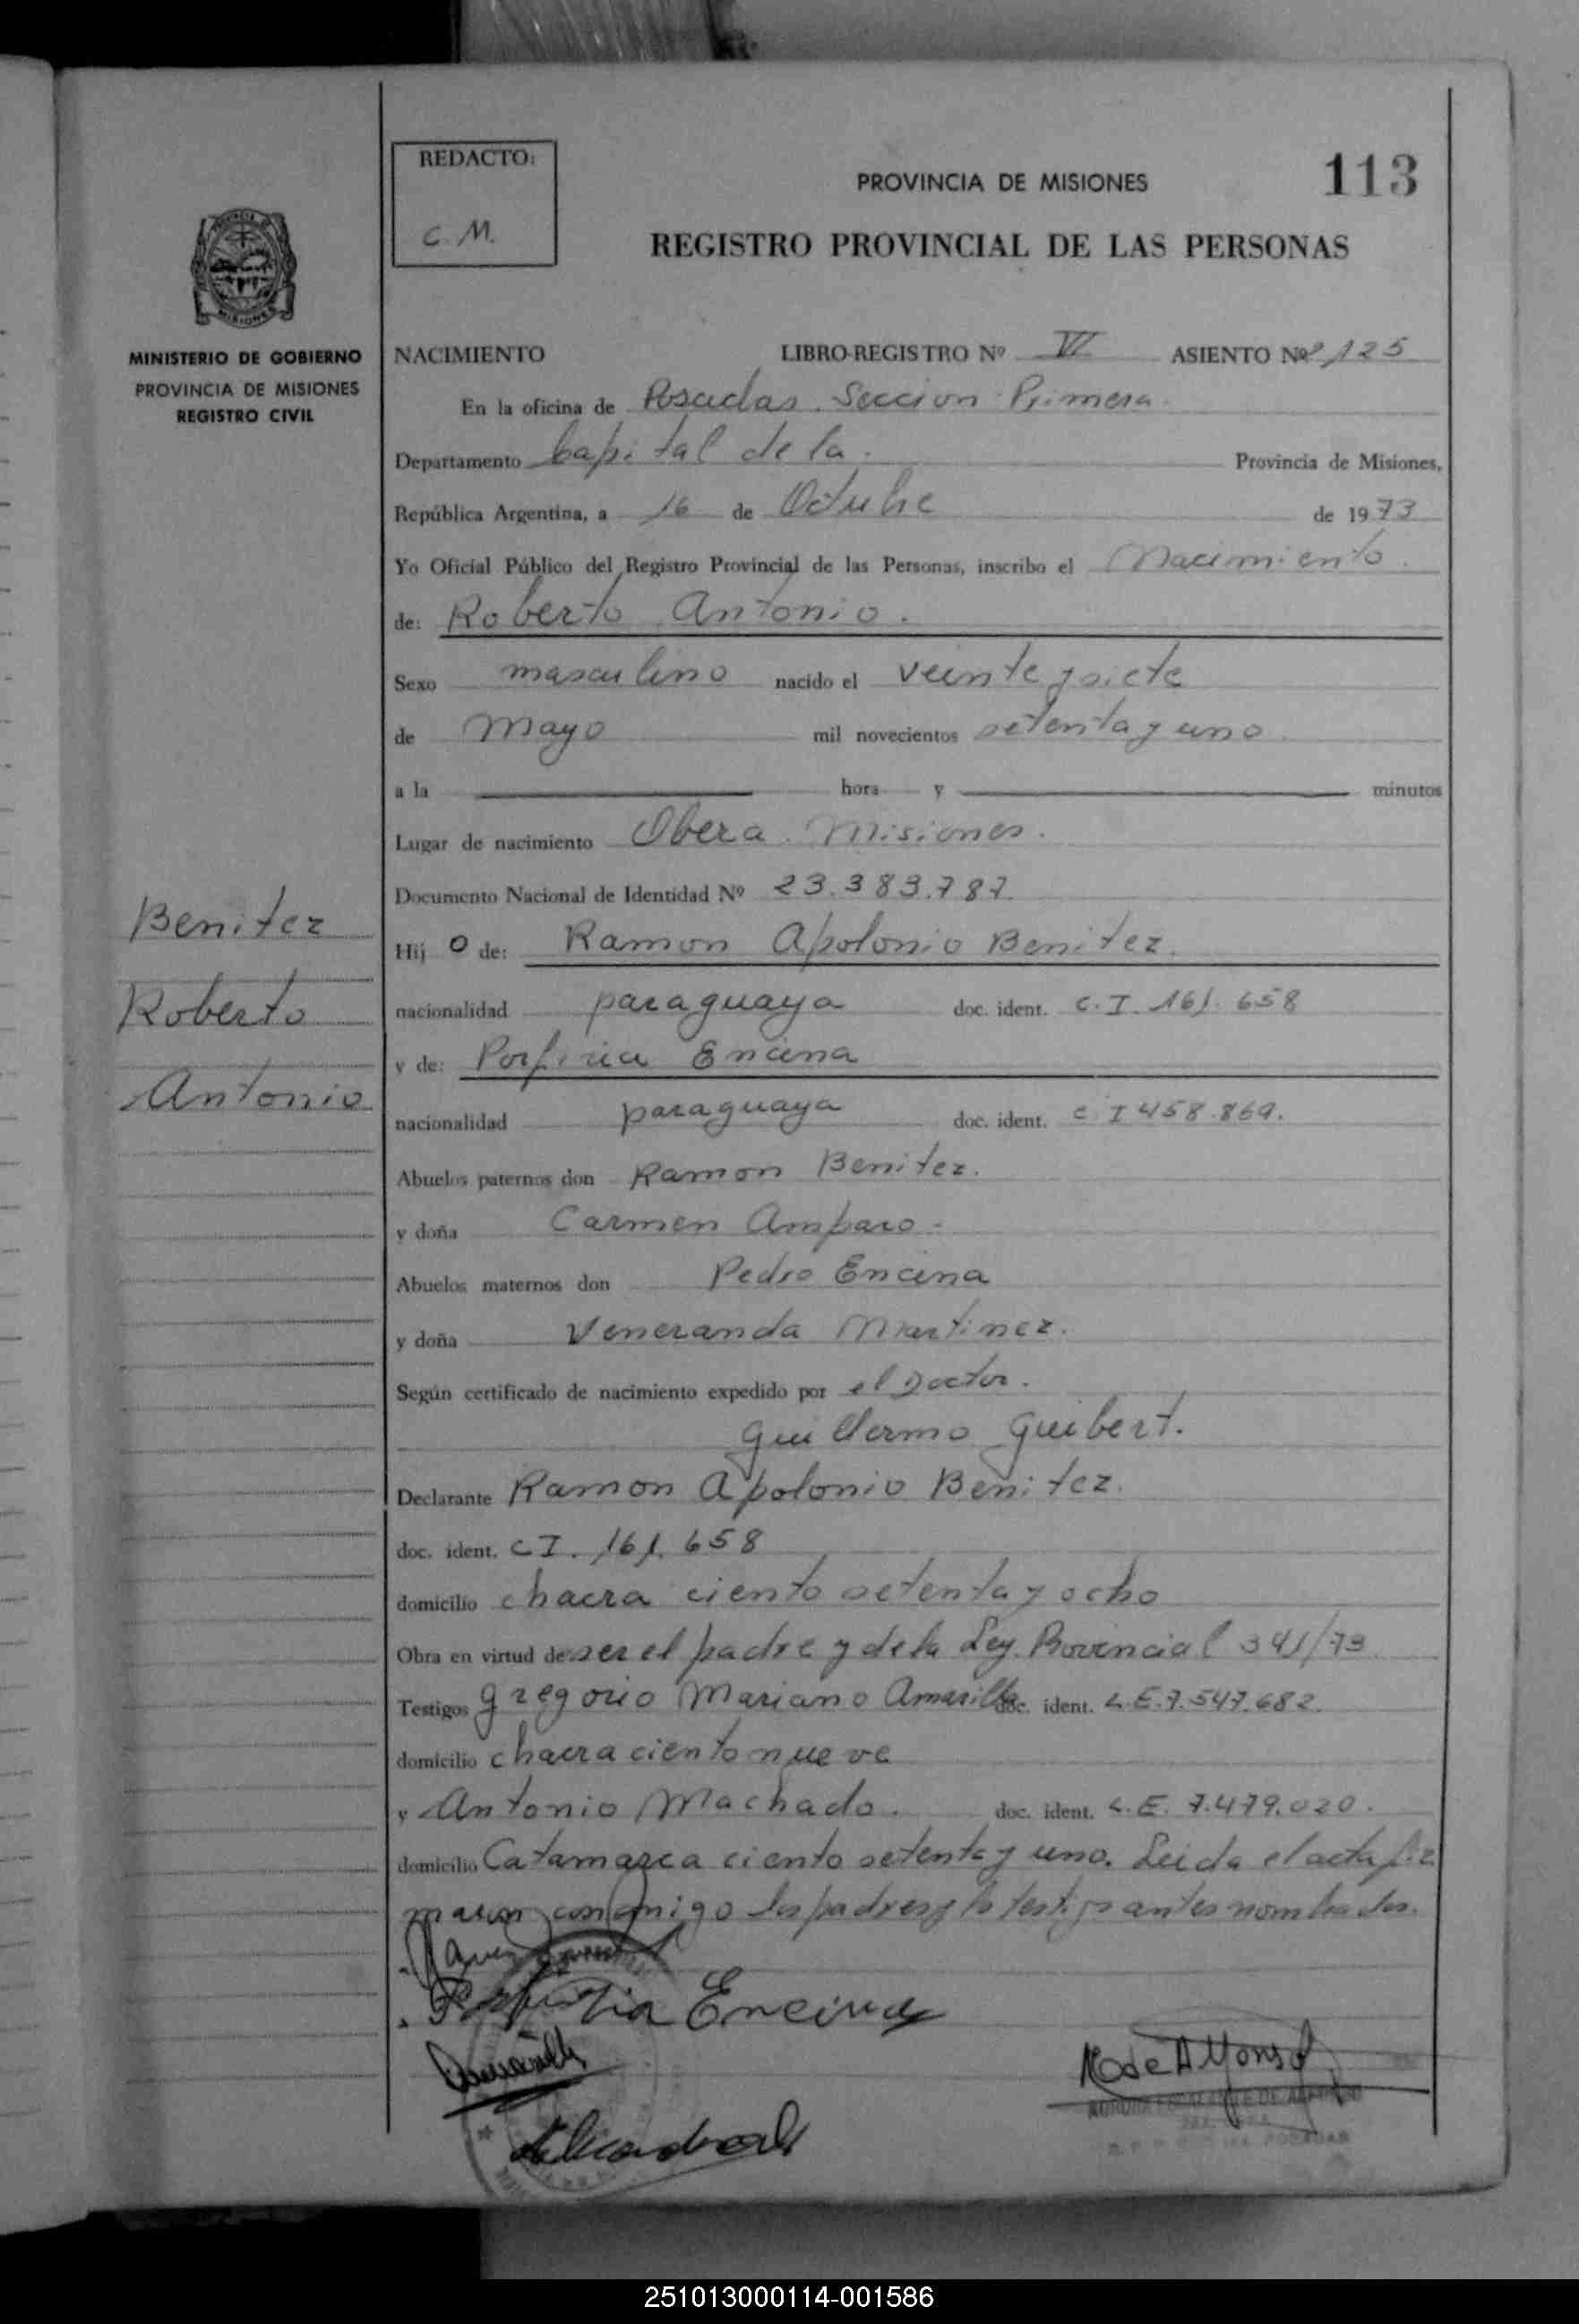 REDACTO:
C. M.
PROVINCIA DE MISIONES
113
REGISTRO PROVINCIAL DE LAS PERSONAS
MINISTERIO DE GOBIERNO
PROVINCIA DE MISIONES
REGISTRO CIVIL
NACIMIENTO LIBRO-REGISTRO Nº VI ASIENTO Nº 125
En la oficina de Posadas. Seccion Primera.
Departamento Capital de la. Provincia de Misiones,
República Argentina, a 16 de Octubre de 1973
Yo Oficial Público del Registro Provincial de las Personas, inscribo el Nacimiento.
de: Roberto Antonio.
Sexo masculino nacido el veinte y siete
de Mayo mil novecientos setenta y uno
a la hora y minutos
Lugar de nacimiento Obera. Misiones.
Documento Nacional de Identidad Nº 23.383.787.
Benitez
Roberto
Antonio
Hij o de: Ramon Apolonio Benitez.
nacionalidad paraguaya doc. ident. C.I. 161.658
y de: Porfiria Encina
nacionalidad paraguaya doc. ident. C I 458.869.
Abuelos paternos don Ramon Benitez.
y doña Carmen Amparo.
Abuelos maternos don Pedro Encina
y doña Veneranda Martinez.
Según certificado de nacimiento expedido por el Doctor.
Guillermo Guibert.
Declarante Ramon Apolonio Benitez.
doc. ident. C I. 161.658
domicilio chacra ciento setenta y ocho
Obra en virtud de ser el padre y de la Ley Provincial 341/73
Testigos Gregorio Mariano Amarilla doc. ident. L.E. 7.547.682.
domicilio chacra ciento nueve
y Antonio Machado. doc. ident. L.E. 7.479.020.
domicilio Catamarca ciento setenta y uno. Leida el acta fir
maron conmigo los padres y lo testigos antes nombrados.
Porfiria Encina
251013000114-001586